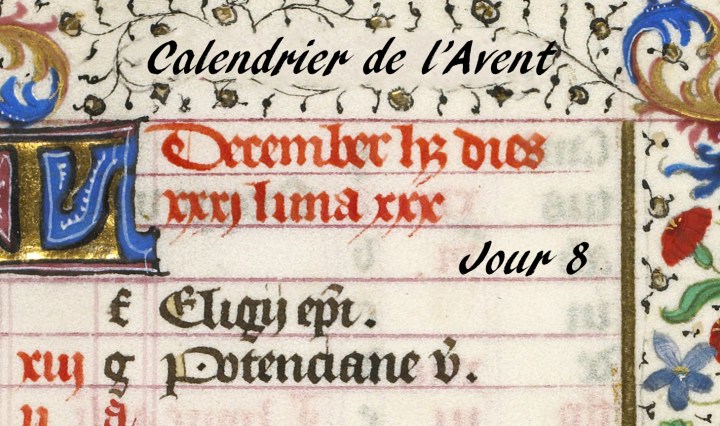 Calendrier de l'Avent
KL
December hz dies
xxxj luna xxx
Jour 8
f Eligij epi.
xiij g Potenciane v.
ii a